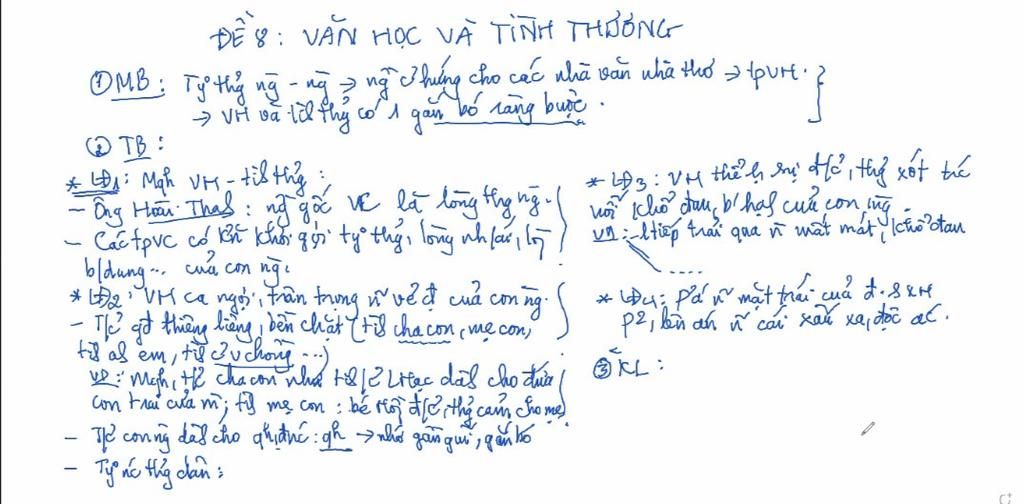 ĐỀ 8: VĂN HỌC VÀ TÌNH THƯƠNG
① MB: Ty thg ng - ng → ng c/hứng cho các nhà văn nhà thơ → tpVH.
→ VH và t thg có 1 gắn bó ràng buộc.
② TB:
* LĐ1: Mqh VH - t thg:
- Ông Hoài Thah: ng gốc VC là lòng thg ng.
- Các tpVC có k/n khơi gợi ty thg, lòng nh/ái, lg
b/dung... của con ng.
* LĐ2: VH ca ngợi, trân trọng n vẻ đ của con ng.
- T/c gđ thiêng liêng, bền chặt (t cha con, mẹ con,
t as em, t vchồng ...)
VD: Mqh, t/c cha con như t/c LHạc dàh cho đứa
con trai của m; t mẹ con: bé Hồg đ/c, thg cảm cho mẹ
- T/c con ng dàh cho qh, đnc: qh → nhớ gần gũi, gắn bó
- Ty nc thg dân:
* LĐ3: VH thể h sự đ/c, thg xót trc
nỗi khổ đau, b/hạh của con ng.
VD: trải qua n mất mát, khổ đau
....
* LĐ4: p/á n mặt trái của đ.s XH
P2, lên án n cái xấu xa, độc ác.
③ KL: